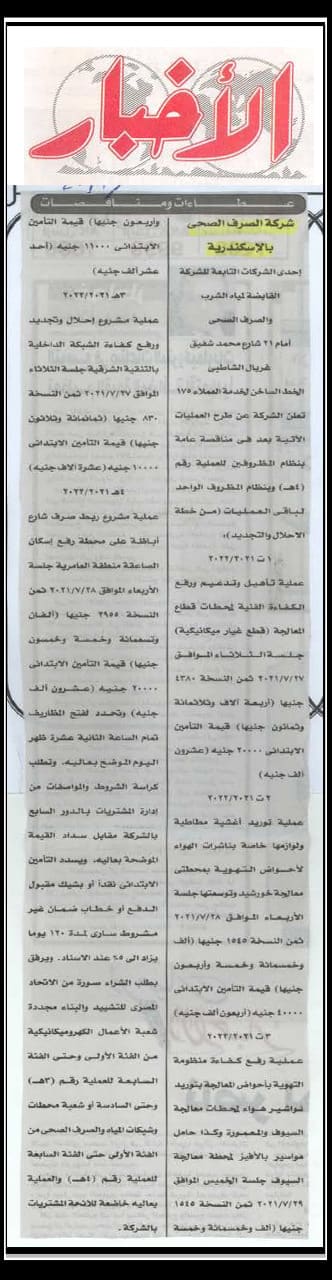 الأخبار
عطاءات ومناقصات
شركة الصرف الصحى
بالإسكندرية
إحدى الشركات التابعة للشركة
القابضة لمياه الشرب
والصرف الصحى
أمام ٢١ شارع محمد شفيق
غربال الشاطبى
الخط الساخن لخدمة العملاء ١٧٥
تعلن الشركة عن طرح العمليات
الآتية بعد فى مناقصة عامة
بنظام المظروفين للعملية رقم
(٤هـ) وبنظام المظروف الواحد
لباقى العمليات (من خطة
الاحلال والتجديد):
١ ت ٢٠٢٢/٢٠٢١
عملية تأهيل وتدعيم ورفع
الكفاءة الفنية لمحطات قطاع
المعالجة (قطع غيار ميكانيكية)
جلسة الثلاثاء الموافق
٢٠٢١/٧/٢٧ ثمن النسخة ٤٣٨٠
جنيها (أربعة آلاف وثلاثمائة
وثمانون جنيها) قيمة التأمين
الابتدائى ٢٠٠٠٠ جنيه (عشرون
ألف جنيه)
٢ ت ٢٠٢٢/٢٠٢١
عملية توريد أغشية مطاطية
ولوازمها خاصة بناشرات الهواء
لأحواض التهوية بمحطتى
معالجة خورشيد وتوسعتها جلسة
الأربعاء الموافق ٢٠٢١/٧/٢٨
ثمن النسخة ١٥٤٥ جنيها (ألف
وخمسمائة وخمسة وأربعون
جنيها) قيمة التأمين الابتدائى
٤٠٠٠٠ جنيه (أربعون ألف جنيه)
٣ ت ٢٠٢٢/٢٠٢١
عملية رفع كفاءة منظومة
التهوية بأحواض المعالجة بتوريد
نواشير هواء لمحطات معالجة
السيوف والمعمورة وكذا حامل
مواسير بالأفيز لمحطة معالجة
السيوف جلسة الخميس الموافق
٢٠٢١/٧/٢٩ ثمن النسخة ١٥٤٥
جنيها (ألف وخمسمائة وخمسة
وأربعون جنيها) قيمة التأمين
الابتدائى ١١٠٠٠ جنيه (أحد
عشر ألف جنيه)
٣هـ ٢٠٢٢/٢٠٢١
عملية مشروع إحلال وتجديد
ورفع كفاءة الشبكة الداخلية
بالتنقية الشرقية جلسة الثلاثاء
الموافق ٢٠٢١/٧/٢٧ ثمن النسخة
٨٣٠ جنيها (ثمانمائة وثلاثون
جنيها) قيمة التأمين الابتدائى
١٠٠٠٠ جنيه (عشرة آلاف جنيه)
٤هـ ٢٠٢٢/٢٠٢١
عملية مشروع ربط صرف شارع
أباظة على محطة رفع إسكان
الصاعقة منطقة العامرية جلسة
الأربعاء الموافق ٢٠٢١/٧/٢٨ ثمن
النسخة ٢٩٥٥ جنيها (ألفان
وتسعمائة وخمسة وخمسون
جنيها) قيمة التأمين الابتدائى
٢٠٠٠٠ جنيه (عشرون ألف
جنيه) وتحدد لفتح المظاريف
تمام الساعة الثانية عشرة ظهر
اليوم الموضح بعاليه. وتطلب
كراسة الشروط والمواصفات من
إدارة المشتريات بالدور السابع
بالشركة مقابل سداد القيمة
الموضحة بعاليه. ويسدد التأمين
الابتدائى نقداً أو بشيك مقبول
الدفع أو خطاب ضمان غير
مشروط سارى لمدة ١٢٠ يوما
يزاد الى ٥٪ عند الاسناد. ويرفق
بطلب الشراء صورة من الاتحاد
المصرى للتشييد والبناء مجددة
شعبة الأعمال الكهروميكانيكية
من الفئة الأولى وحتى الفئة
السابعة للعملية رقم (٣هـ)
وحتى السادسة أو شعبة محطات
وشبكات المياه والصرف الصحى من
الفئة الأولى حتى الفئة السابعة
للعملية رقم (٤هـ) والعملية
بعاليه خاضعة للائحة المشتريات
بالشركة.